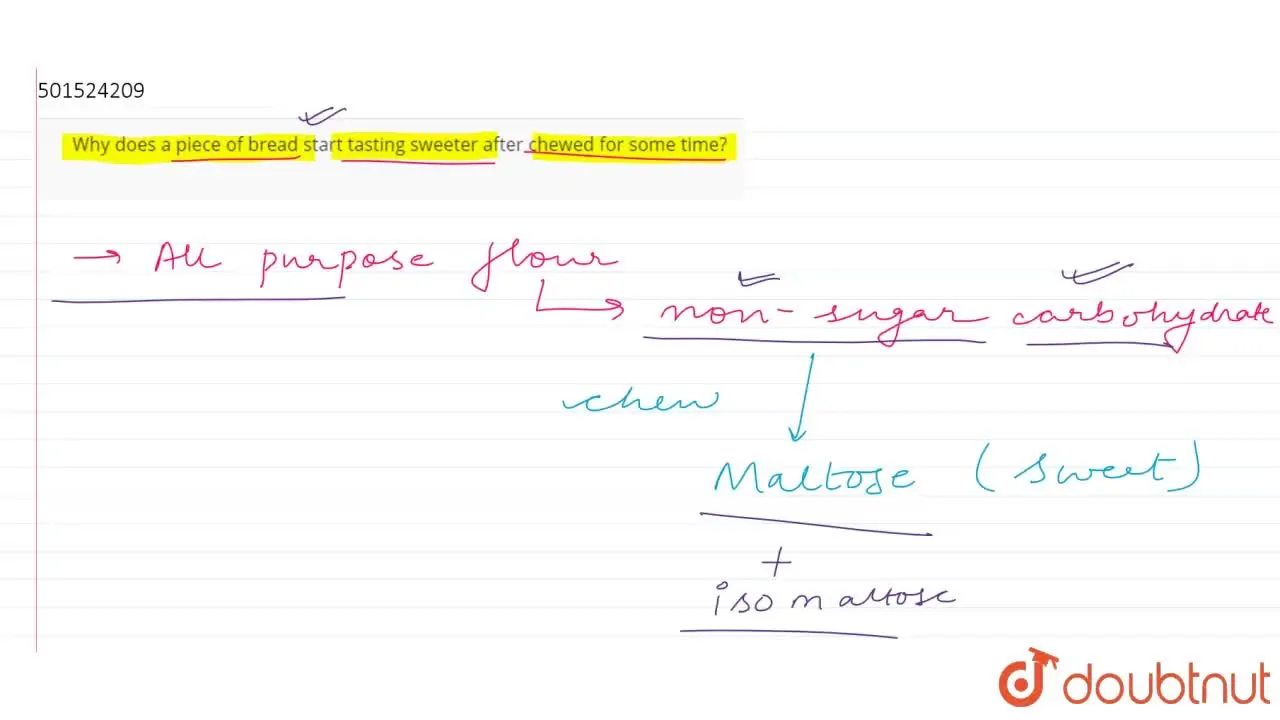 501524209
Why does a piece of bread start tasting sweeter after chewed for some time?
→ All purpose flour
non-sugar carbohydrate
chew
Maltose (sweet)
+
isomaltose
doubtnut